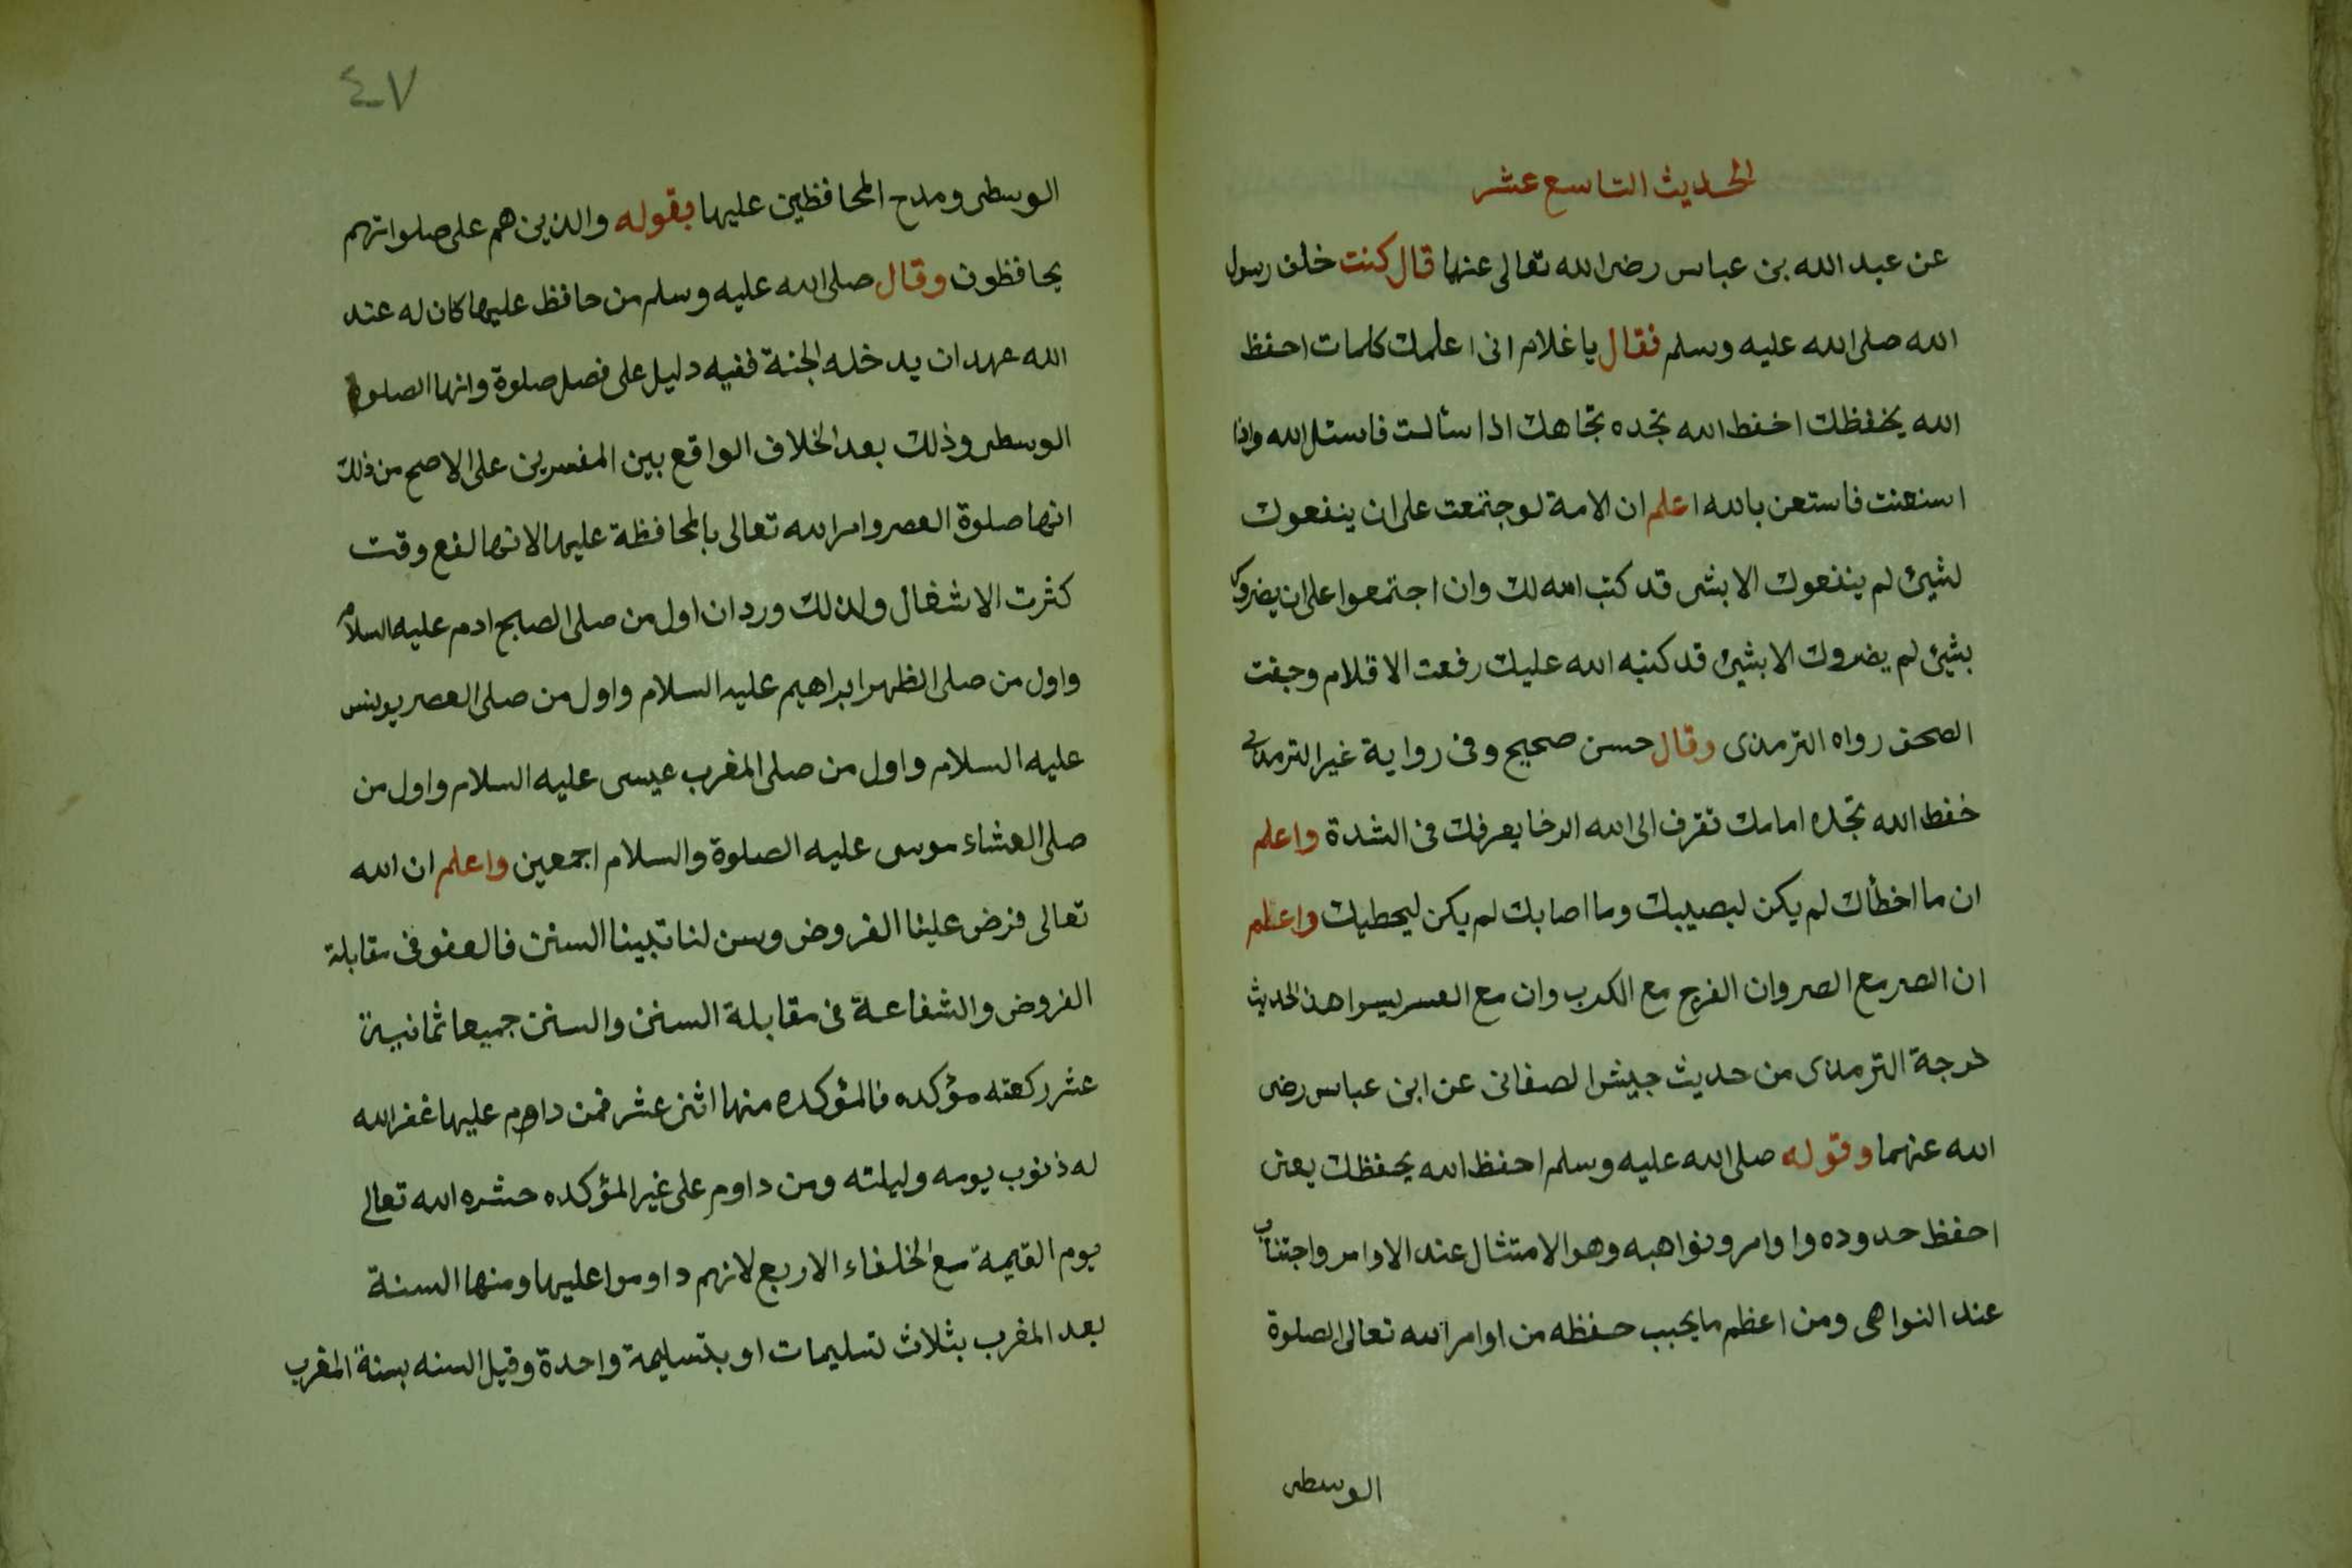 الحديث التاسع عشر
عن عبد الله بن عباس رضى الله تعالى عنهما قال كنت خلف رسول
الله صلى الله عليه وسلم فقال يا غلام انى اعلمك كلمات احفظ
الله يحفظك احفظ الله تجده تجاهك اذا سألت فاسئل الله واذا
استعنت فاستعن بالله اعلم ان الامة لوجتمعت على ان ينفعوك
لشيئ لم ينفعوك الا بشى قد كتب الله لك وان اجتمعوا على ان يضروك
بشيئ لم يضروك الا بشيئ قد كتبه الله عليك رفعت الاقلام وجفت
الصحف رواه الترمذى وقال حسن صحيح وفى رواية غير الترمذى
حفظ الله تجده امامك تقرف الى الله الرخا يعرفك فى الشدة واعلم
ان ما اخطأك لم يكن ليصيبك وما اصابك لم يكن ليحطيك واعلم
ان الصر مع الصر وان الفرج مع الكرب وان مع العسر يسرا هذ الحديث
خرجة الترمذى من حديث جيش الصفانى عن ابن عباس رضى
الله عنهما وقوله صلى الله عليه وسلم احفظ الله يحفظك يعنى
احفظ حدوده واوامر ونواهيه وهو الامتثال عند الاوامر واجتناب
عند النواهى ومن اعظم ما يجب حفظه من اوامر الله تعالى الصلوة
الوسطى
٤٧
الوسطى ومدح المحافظين عليها بقوله والذين هم على صلواتهم
يحافظون وقال صلى الله عليه وسلم من حافظ عليها كان له عند
الله عهد ان يدخله الجنة ففيه دليل على فضل صلوة وانها الصلوة
الوسطى وذلك بعد الخلاف الواقع بين المفسرين على الاصح من ذلك
انها صلوة العصر وامر الله تعالى بالمحافظة عليها لانها لفع وقت
كثرت الاشغال ولذلك ورد ان اول من صلى الصبح ادم عليه السلام
واول من صلى الظهر ابراهيم عليه السلام واول من صلى العصر يونس
عليه السلام واول من صلى المغرب عيسى عليه السلام واول من
صلى العشاء موسى عليه الصلوة والسلام اجمعين واعلم ان الله
تعالى فرض علينا الفروض وسن لنا نبينا السنن فالعفو فى مقابلة
الفروض والشفاعة فى مقابلة السنن والسنن جميعا ثمانية
عشر ركعته مؤكده فالمؤكده منها اثنى عشر فمن داوم عليها غفر الله
له ذنوب يومه وليلته ومن داوم على غير المؤكده حشره الله تعالى
يوم القيمة مع الخلفاء الاربع لانهم داوموا عليها ومنها السنة
بعد المغرب بثلاث تسليمات او بتسليمة واحدة وقيل السنه بسنة المغرب